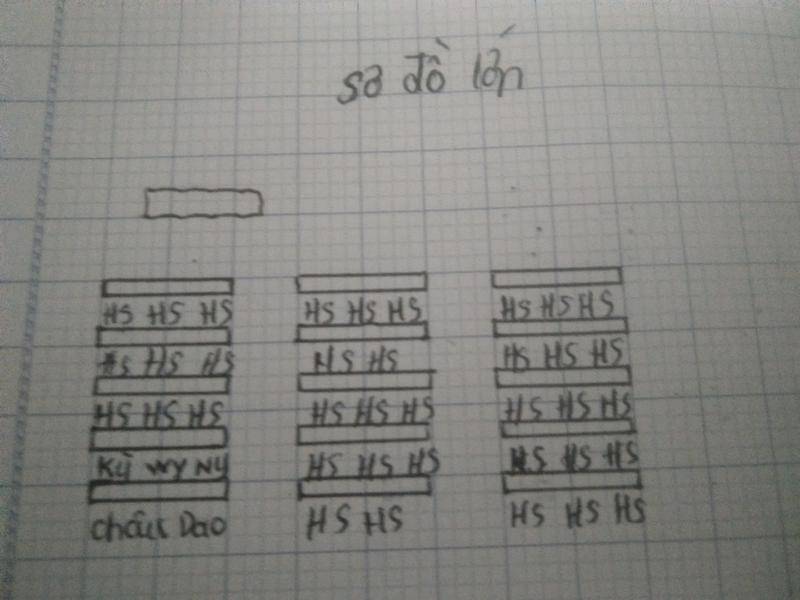 sơ đồ lớn
HS HS HS HS HS HS HS HS HS
HS HS HS HS HS HS HS HS
HS HS HS HS HS HS HS HS HS
Kỳ Vy Ny HS HS HS HS HS HS
Châu Dao HS HS HS HS HS